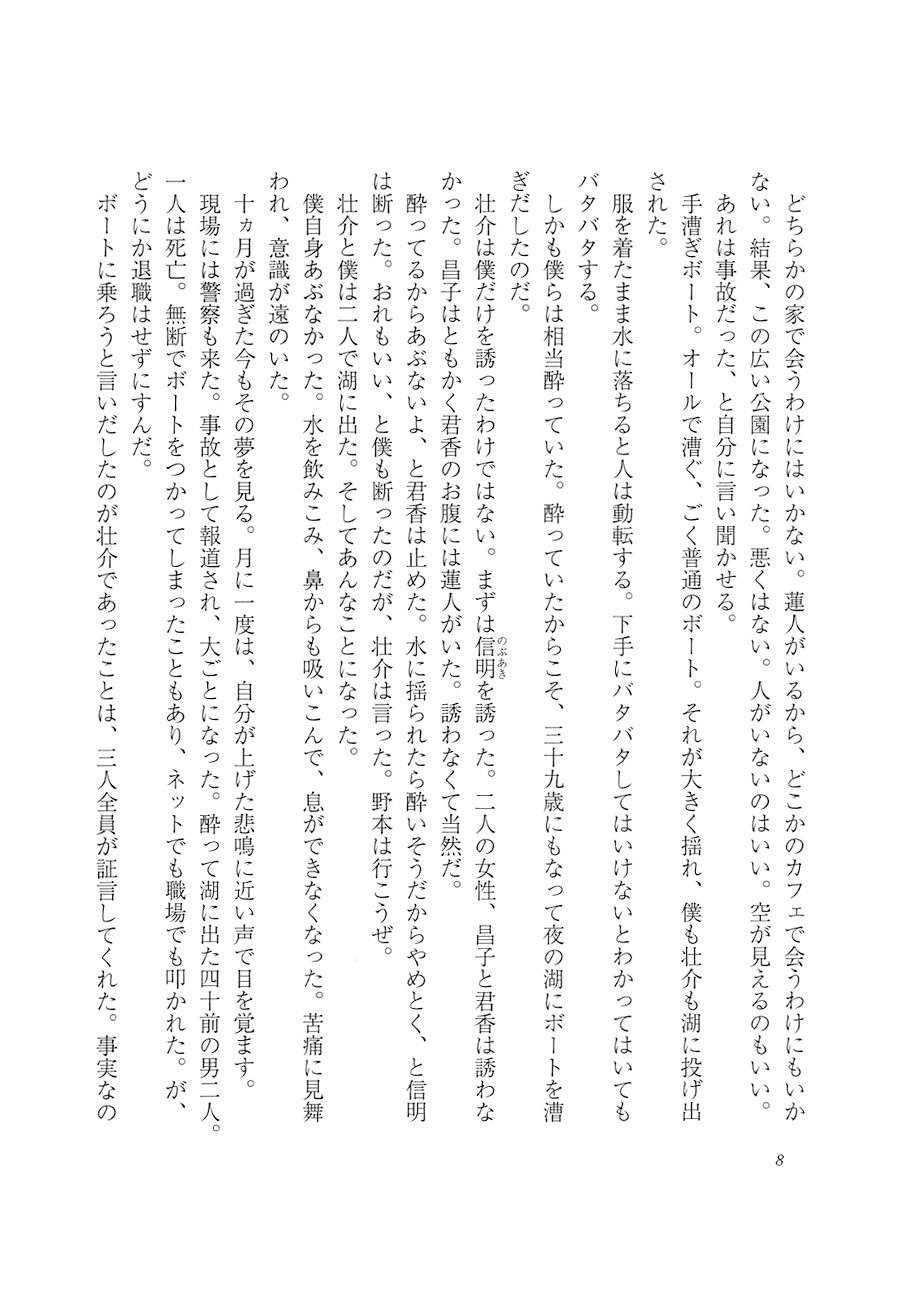 どちらかの家で会うわけにはいかない。蓮人がいるから、どこかのカフェで会うわけにもいか
ない。結果、この広い公園になった。悪くはない。人がいないのはいい。空が見えるのもいい。
あれは事故だった、と自分に言い聞かせる。
手漕ぎボート。オールで漕ぐ、ごく普通のボート。それが大きく揺れ、僕も壮介も湖に投げ出
された。
服を着たまま水に落ちると人は動転する。下手にバタバタしてはいけないとわかってはいても
バタバタする。
しかも僕らは相当酔っていた。酔っていたからこそ、三十九歳にもなって夜の湖にボートを漕
ぎだしたのだ。
壮介は僕だけを誘ったわけではない。まずは信明を誘った。二人の女性、昌子と君香は誘わな
のぶあき
かった。昌子はともかく君香のお腹には蓮人がいた。誘わなくて当然だ。
酔ってるからあぶないよ、と君香は止めた。水に揺られたら酔いそうだからやめとく、と信明
は断った。おれもいい、と僕も断ったのだが、壮介は言った。野本は行こうぜ。
壮介と僕は二人で湖に出た。そしてあんなことになった。
僕自身あぶなかった。水を飲みこみ、鼻からも吸いこんで、息ができなくなった。苦痛に見舞
われ、意識が遠のいた。
十ヵ月が過ぎた今もその夢を見る。月に一度は、自分が上げた悲鳴に近い声で目を覚ます。
現場には警察も来た。事故として報道され、大ごとになった。酔って湖に出た四十前の男二人。
一人は死亡。無断でボートをつかってしまったこともあり、ネットでも職場でも叩かれた。が、
どうにか退職はせずにすんだ。
ボートに乗ろうと言いだしたのが壮介であったことは、三人全員が証言してくれた。事実なの
8